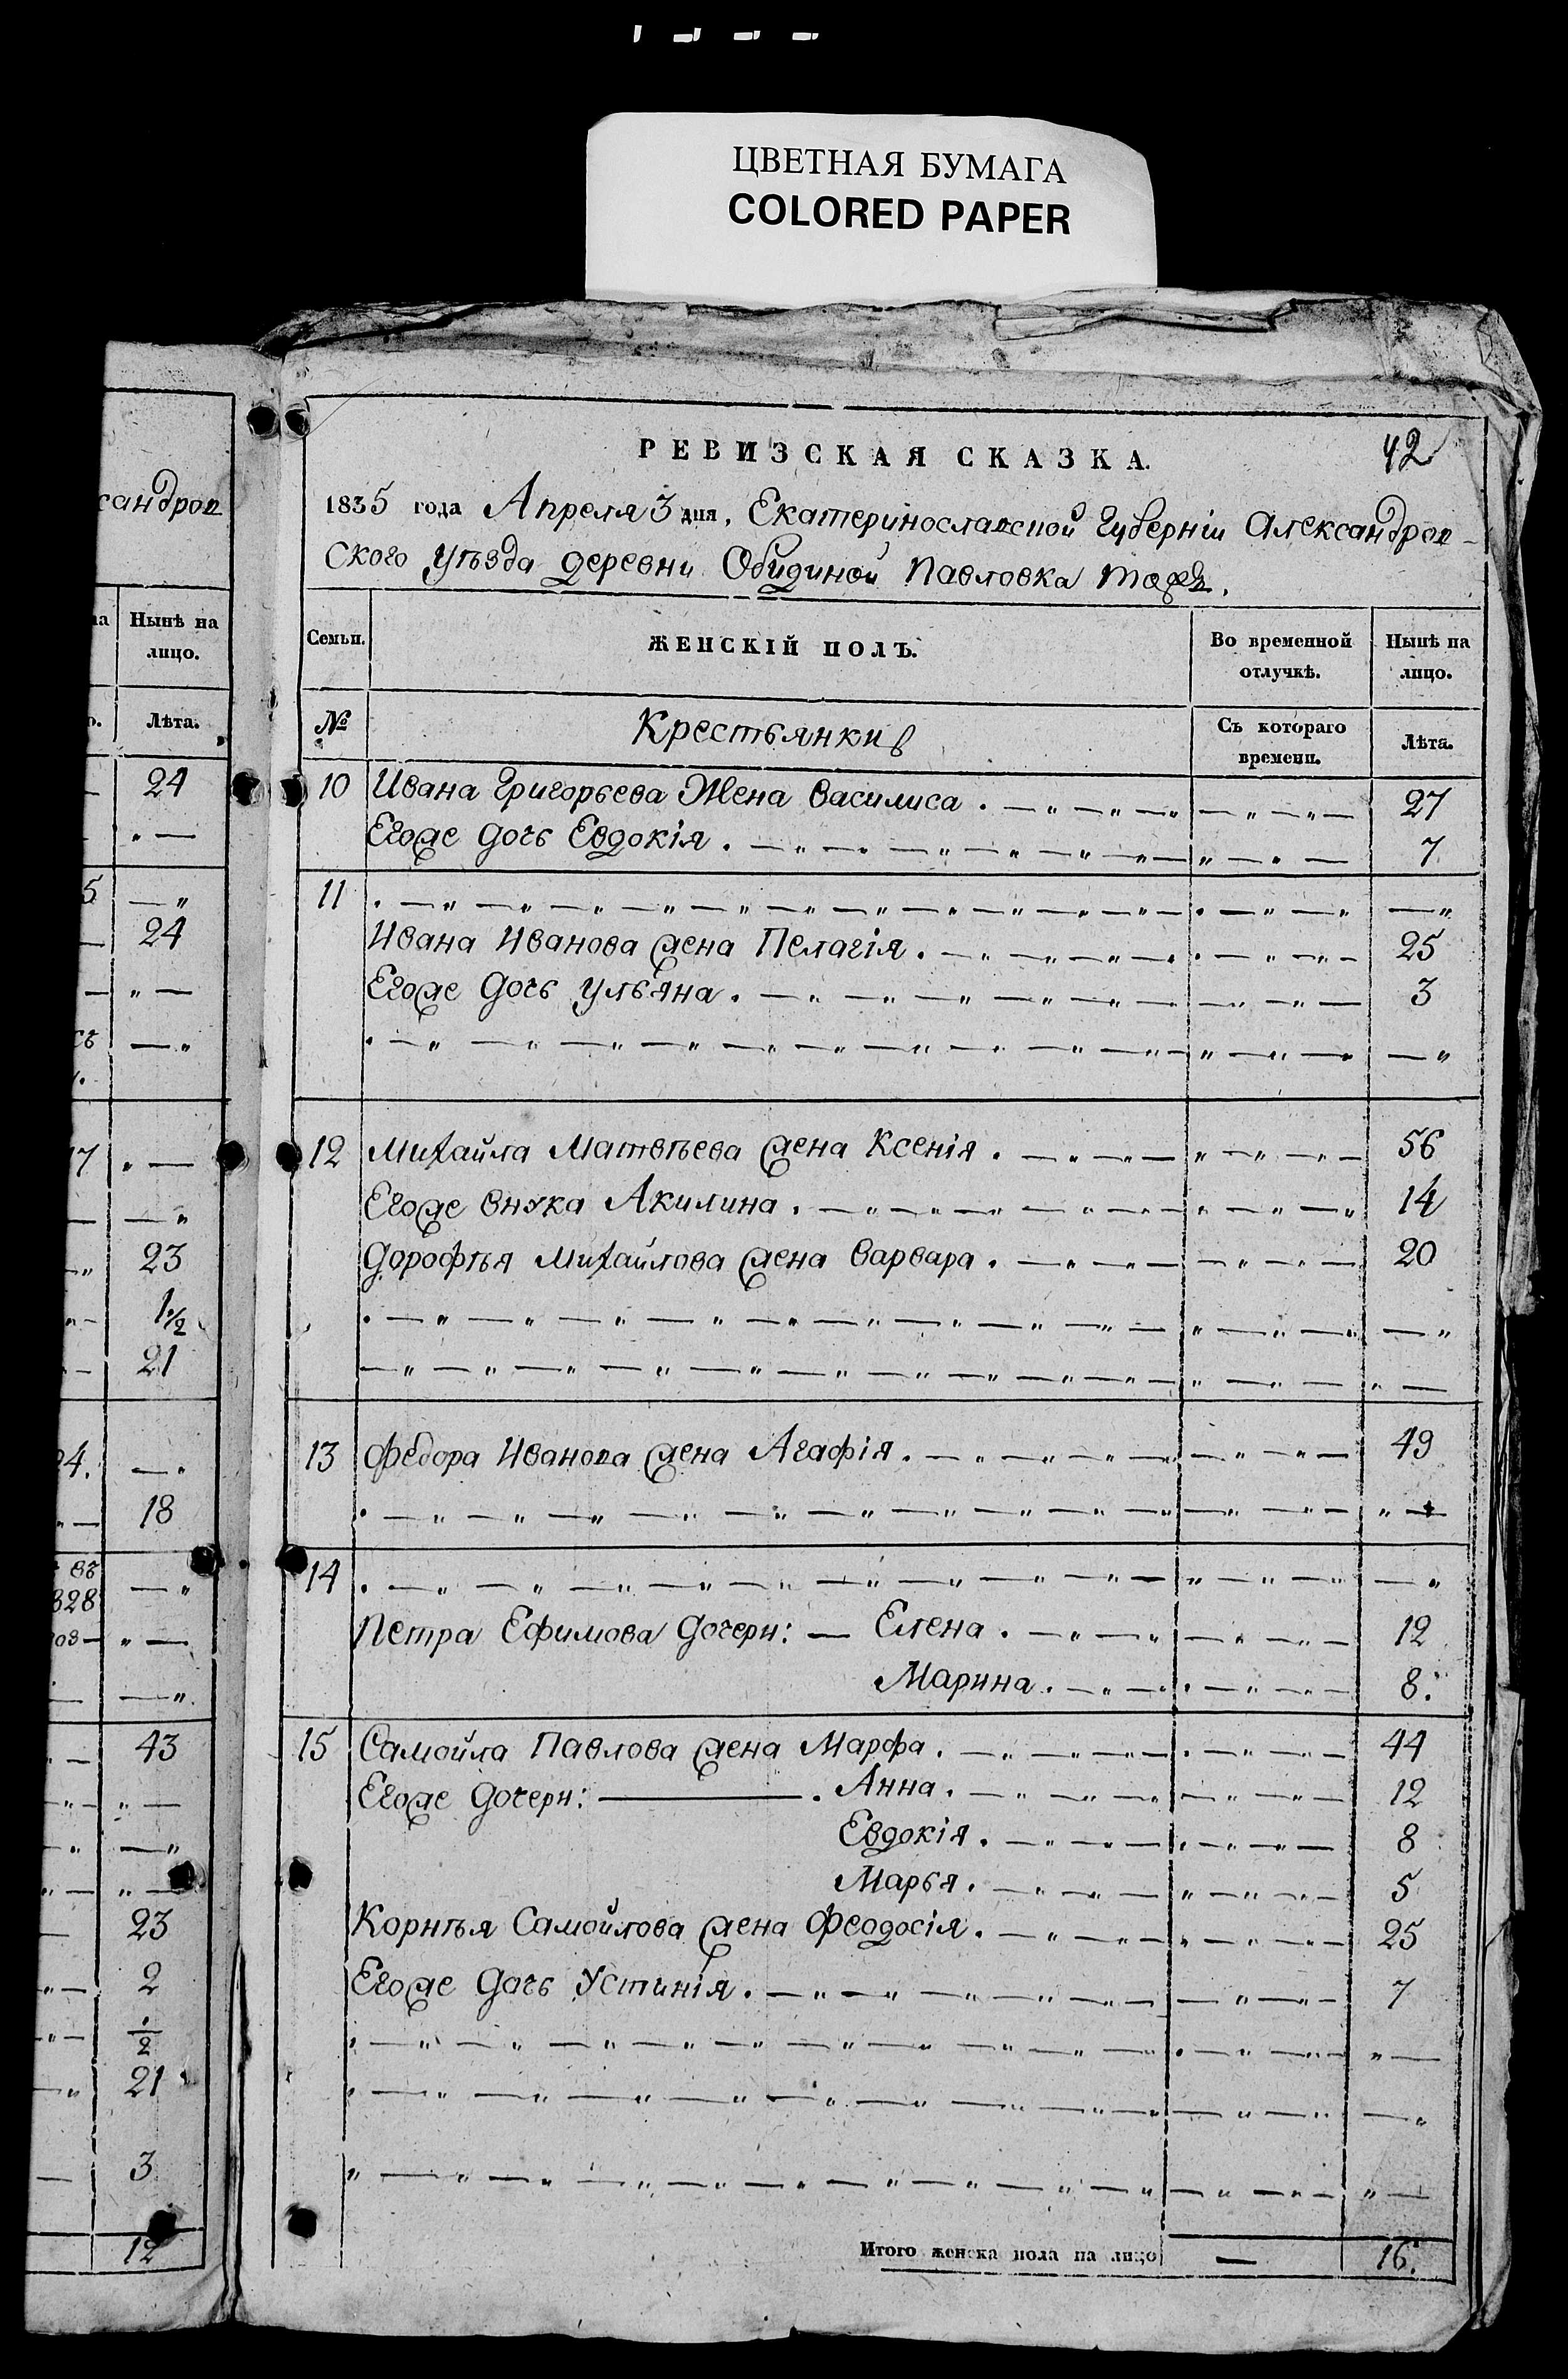 ЦВЕТНАЯ БУМАГА
COLORED PAPER
РЕВИЗСКАЯ СКАЗКА.
42
1835 года Апреля 3 дня, Екатеринославской Губерніи Александров-
ского уѣзда деревни Обидиной Павловка тожъ.
Семьи.
ЖЕНСКІЙ ПОЛЪ.
Во временной отлучкѣ.
Нынѣ на лицо.
№
Крестьянки
Съ котораго времени.
Лѣта.
10 Ивана Григорьева Жена Василиса. 27
Егоже дочь Евдокія. 7
11
Ивана Иванова жена Пелагія. 25
Егоже дочь Ульяна. 3
12 Михайла Матвѣева жена Ксенія. 56
Егоже внука Акилина. 14
Дорофѣя Михайлова жена Варвара. 20
13 Федора Иванова жена Агафія. 49
14
Петра Ефимова дочери: — Елена. 12
Марина. 8.
15 Самойла Павлова жена Марфа. 44
Егоже дочери: — Анна. 12
Евдокія. 8
Марья. 5
Корнѣя Самойлова жена Феодосія. 25
Егоже дочь Устинія. 7
Итого женска пола на лицо — 16.
сандров
Нынѣ на
лицо.
Лѣта.
24
5
24
17
23
1 1/2
21
24.
18
въ
828
43
23
2
1/2
21
3
12